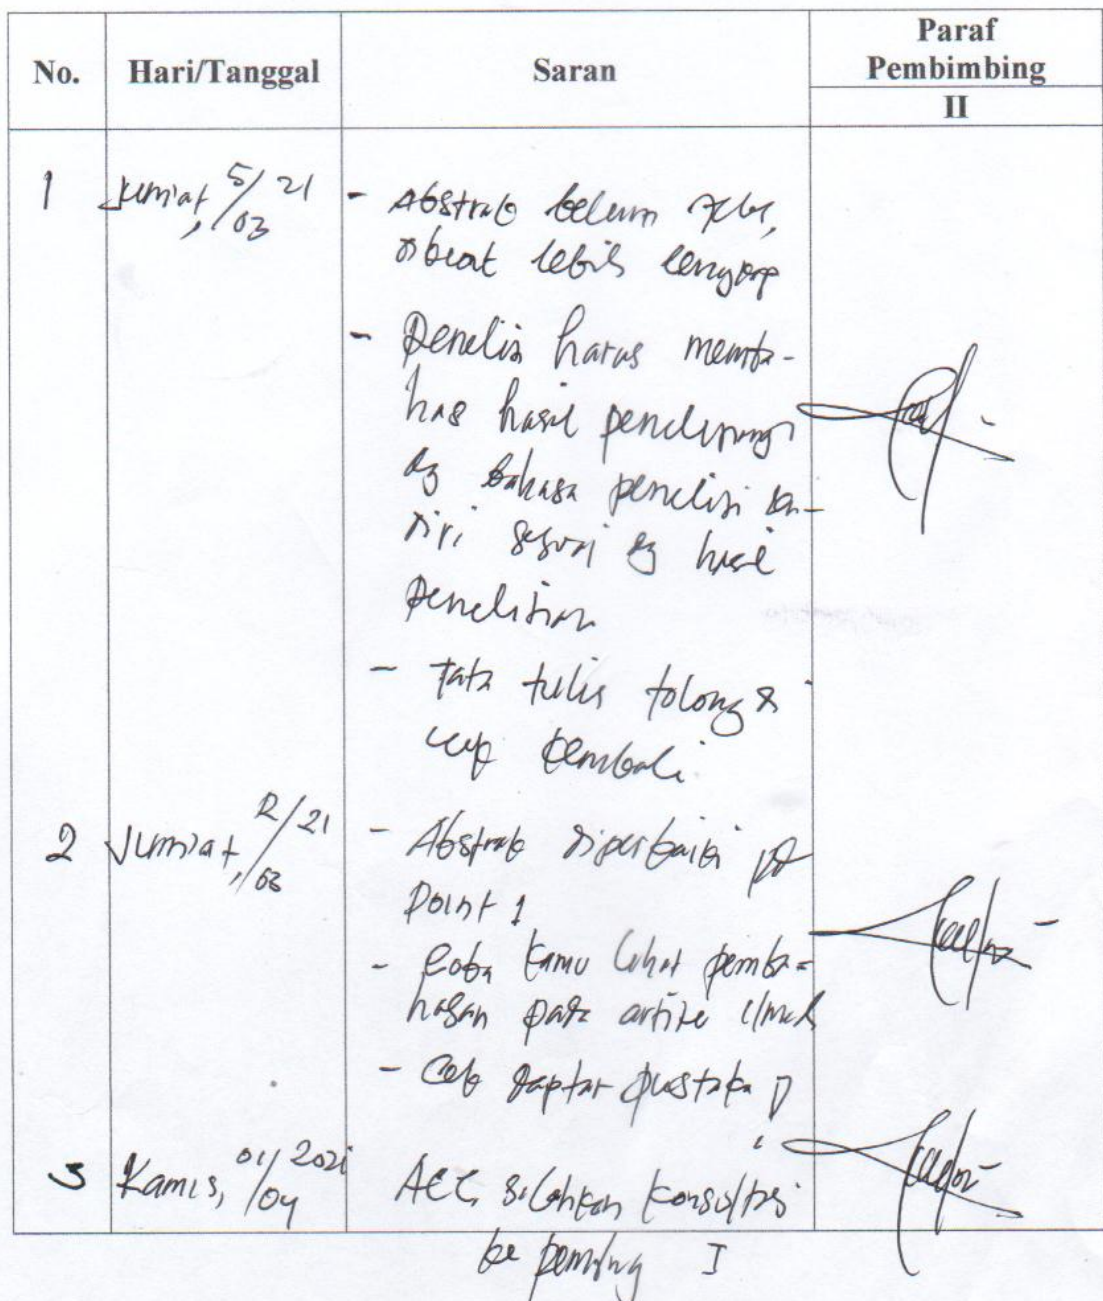 No.
Hari/Tanggal
Saran
Paraf
Pembimbing
II
1 Jum'at, 5/21
/03
- Abstrak belum jelas,
dibuat lebih lengkap
- Peneliti harus memba-
has hasil penelitiannya
dg bahasa peneliti sen-
diri sesuai dg hasil
penelitian
- Tata tulis tolong di
cek kembali
2 Jum'at, 12/21
/03
- Abstrak diperbaiki pd
point 1
- Coba kamu lihat pemba-
hasan pada artikel ilmiah
- Cek daptar pustaka
3 Kamis, 01/2021
/04
ACC, silahkan konsultasi
ke pembing I